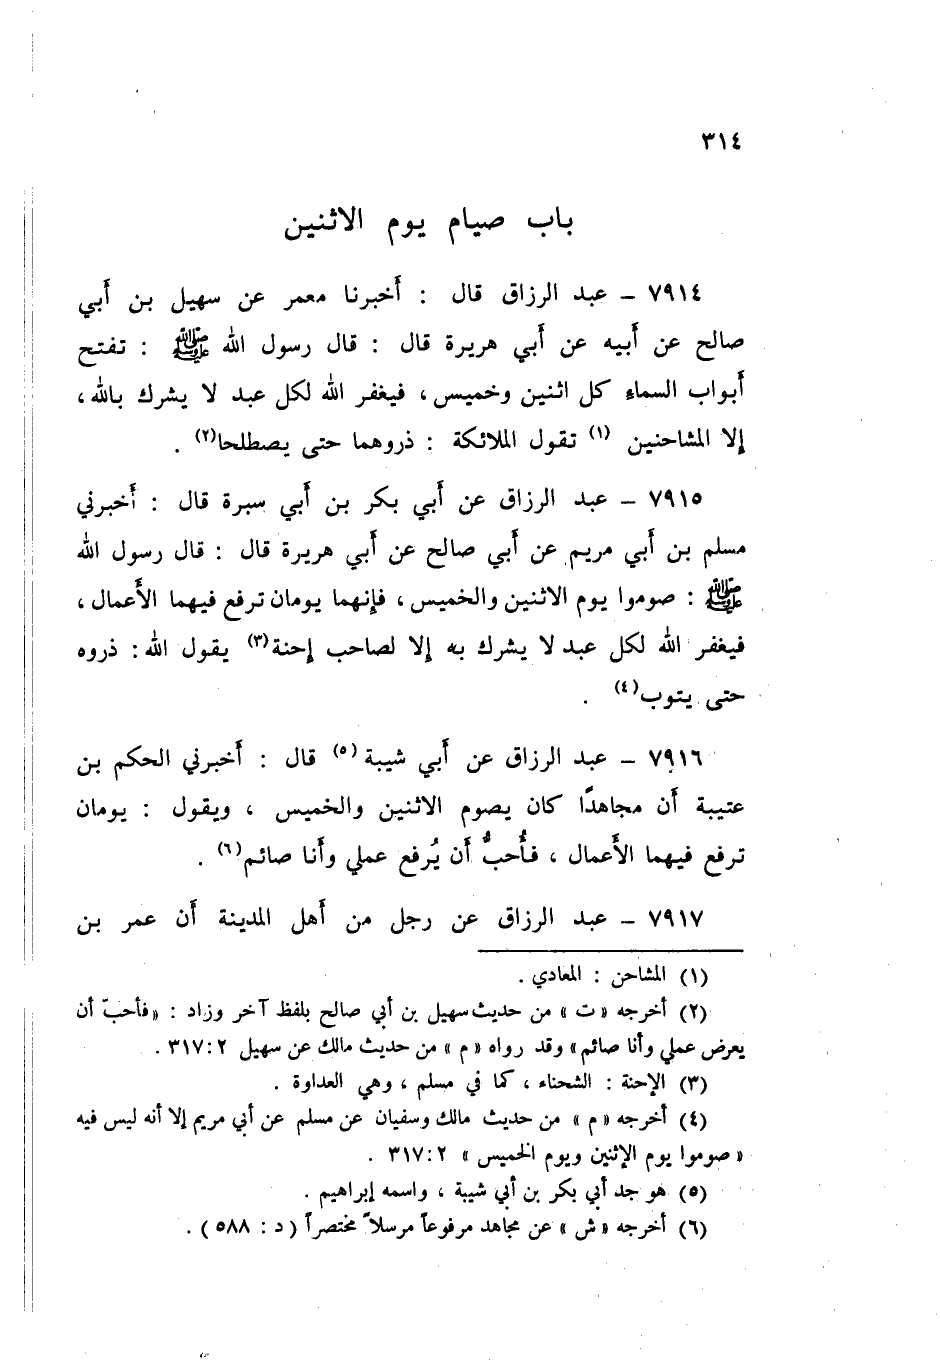 ٣١٤
باب صيام يوم الاثنين
٧٩١٤ – عبد الرزاق قال : أخبرنا معمر عن سهيل بن أبي
صالح عن أبيه عن أبي هريرة قال : قال رسول الله ﷺ : تفتح
أبواب السماء كل اثنين وخميس، فيغفر الله لكل عبد لا يشرك بالله،
إلا المشاحنين (١) تقول الملائكة : ذروهما حتى يصطلحا(٢) .
٧٩١٥ – عبد الرزاق عن أبي بكر بن أبي سبرة قال : أخبرني
مسلم بن أبي مريم عن أبي صالح عن أبي هريرة قال : قال رسول الله
ﷺ : صوموا يوم الاثنين والخميس، فإنهما يومان ترفع فيهما الأعمال،
فيغفر الله لكل عبد لا يشرك به إلا لصاحب إحنة(٣) يقول الله: ذروه
حتى يتوب(٤) .
٧٩١٦ – عبد الرزاق عن أبي شيبة (٥) قال : أخبرني الحكم بن
عتيبة أن مجاهدًا كان يصوم الاثنين والخميس ، ويقول : يومان
ترفع فيهما الأعمال ، فأُحبُّ أن يُرفع عملي وأنا صائم(٦) .
٧٩١٧ – عبد الرزاق عن رجل من أهل المدينة أن عمر بن
(١) المشاحن : المعادي .
(٢) أخرجه « ت » من حديث سهيل بن أبي صالح بلفظ آخر وزاد : « فأحبّ أن
يعرض عملي وأنا صائم» وقد رواه « م » من حديث مالك عن سهيل ٢ :٣١٧ .
(٣) الإحنة : الشحناء ، كما في مسلم ، وهي العداوة .
(٤) أخرجه « م » من حديث مالك وسفيان عن مسلم عن أبي مريم إلا أنه ليس فيه
« صوموا يوم الإثنين ويوم الخميس » ٢ :٣١٧ .
(٥) هو جد أبي بكر بن أبي شيبة ، واسمه إبراهيم .
(٦) أخرجه « ش » عن مجاهد مرفوعاً مرسلاً مختصراً ( د : ٥٨٨ ) .